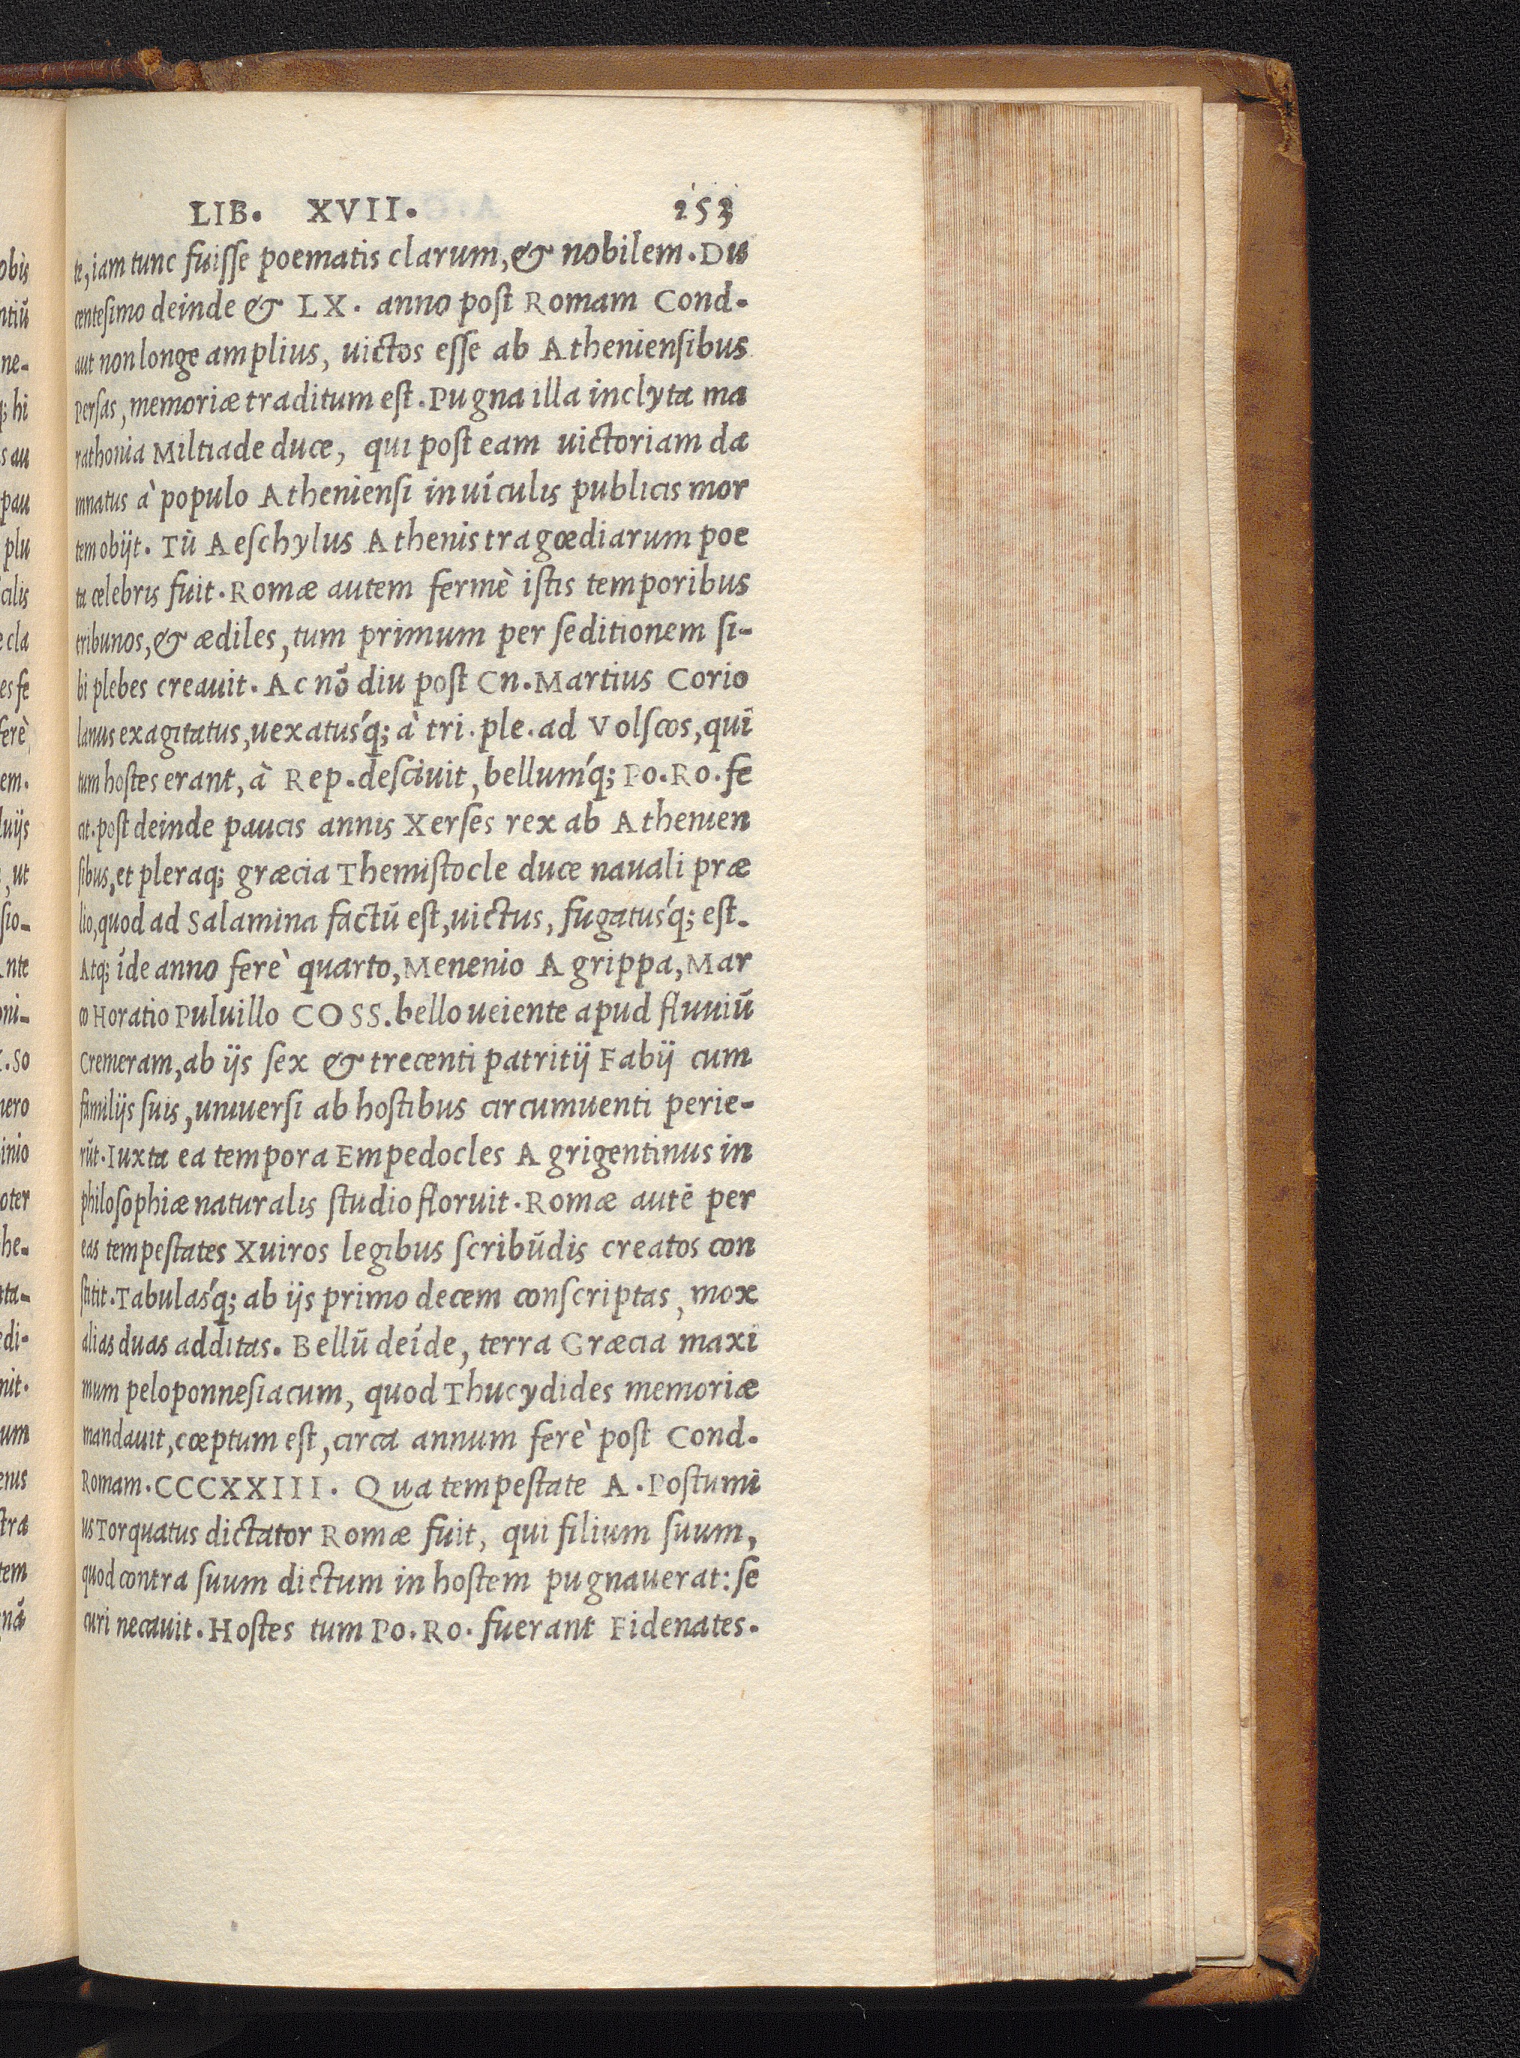 LIB. XVII. 253
te, iam tunc fuiſſe poematis clarum, & nobilem. Du
centeſimo deinde & LX. anno poſt Romam Cond.
aut non longe amplius, uictos eſſe ab Athenienſibus
Perſas, memoriæ traditum eſt. Pugna illa inclyta ma
rathonia Miltiade duce, qui poſt eam uictoriam da
mnatus à populo Athenienſi in uículis publicis mor
tem obijt. Tū Aeſchylus Athenis tragœdiarum poe
ta celebris fuit. Romæ autem fermè iſtis temporibus
tribunos, & ædiles, tum primum per ſeditionem ſi-
bi plebes creauit. Ac nō diu poſt Cn. Martius Corio
lanus exagitatus, uexatus'q; à tri. ple. ad Volſcos, qui
tum hoſtes erant, à Rep. deſciuit, bellum'q; Po. Ro. fe
cit. poſt deinde paucis annis Xerſes rex ab Athenien
ſibus, et pleraq; græcia Themiſtocle duce nauali præ
lio, quod ad Salamina factū eſt, uictus, fugatus'q; eſt.
Atq; íde anno ferè quarto, Menenio Agrippa, Mar
co Horatio Puluillo COSS. bello ueiente apud fluuiū
Cremeram, ab ijs ſex & trecenti patritij Fabij cum
familijs ſuis, uniuerſi ab hoſtibus circumuenti perie-
rūt. Iuxta ea tempora Empedocles Agrigentinus in
philoſophiæ naturalis ſtudio floruit. Romæ autē per
eas tempeſtates Xuiros legibus ſcribūdis creatos con
ſtitit. Tabulas'q; ab ijs primo decem conſcriptas, mox
alias duas additas. Bellū deíde, terra Græcia maxi
mum peloponneſiacum, quod Thucydides memoriæ
mandauit, cœptum eſt, circa annum ferè poſt Cond.
Romam. CCCXXIII. Qua tempeſtate A. Poſtumi
us Torquatus dictator Romæ fuit, qui filium ſuum,
quod contra ſuum dictum in hoſtem pugnauerat: ſe
curi necauit. Hoſtes tum Po. Ro. fuerant Fidenates.